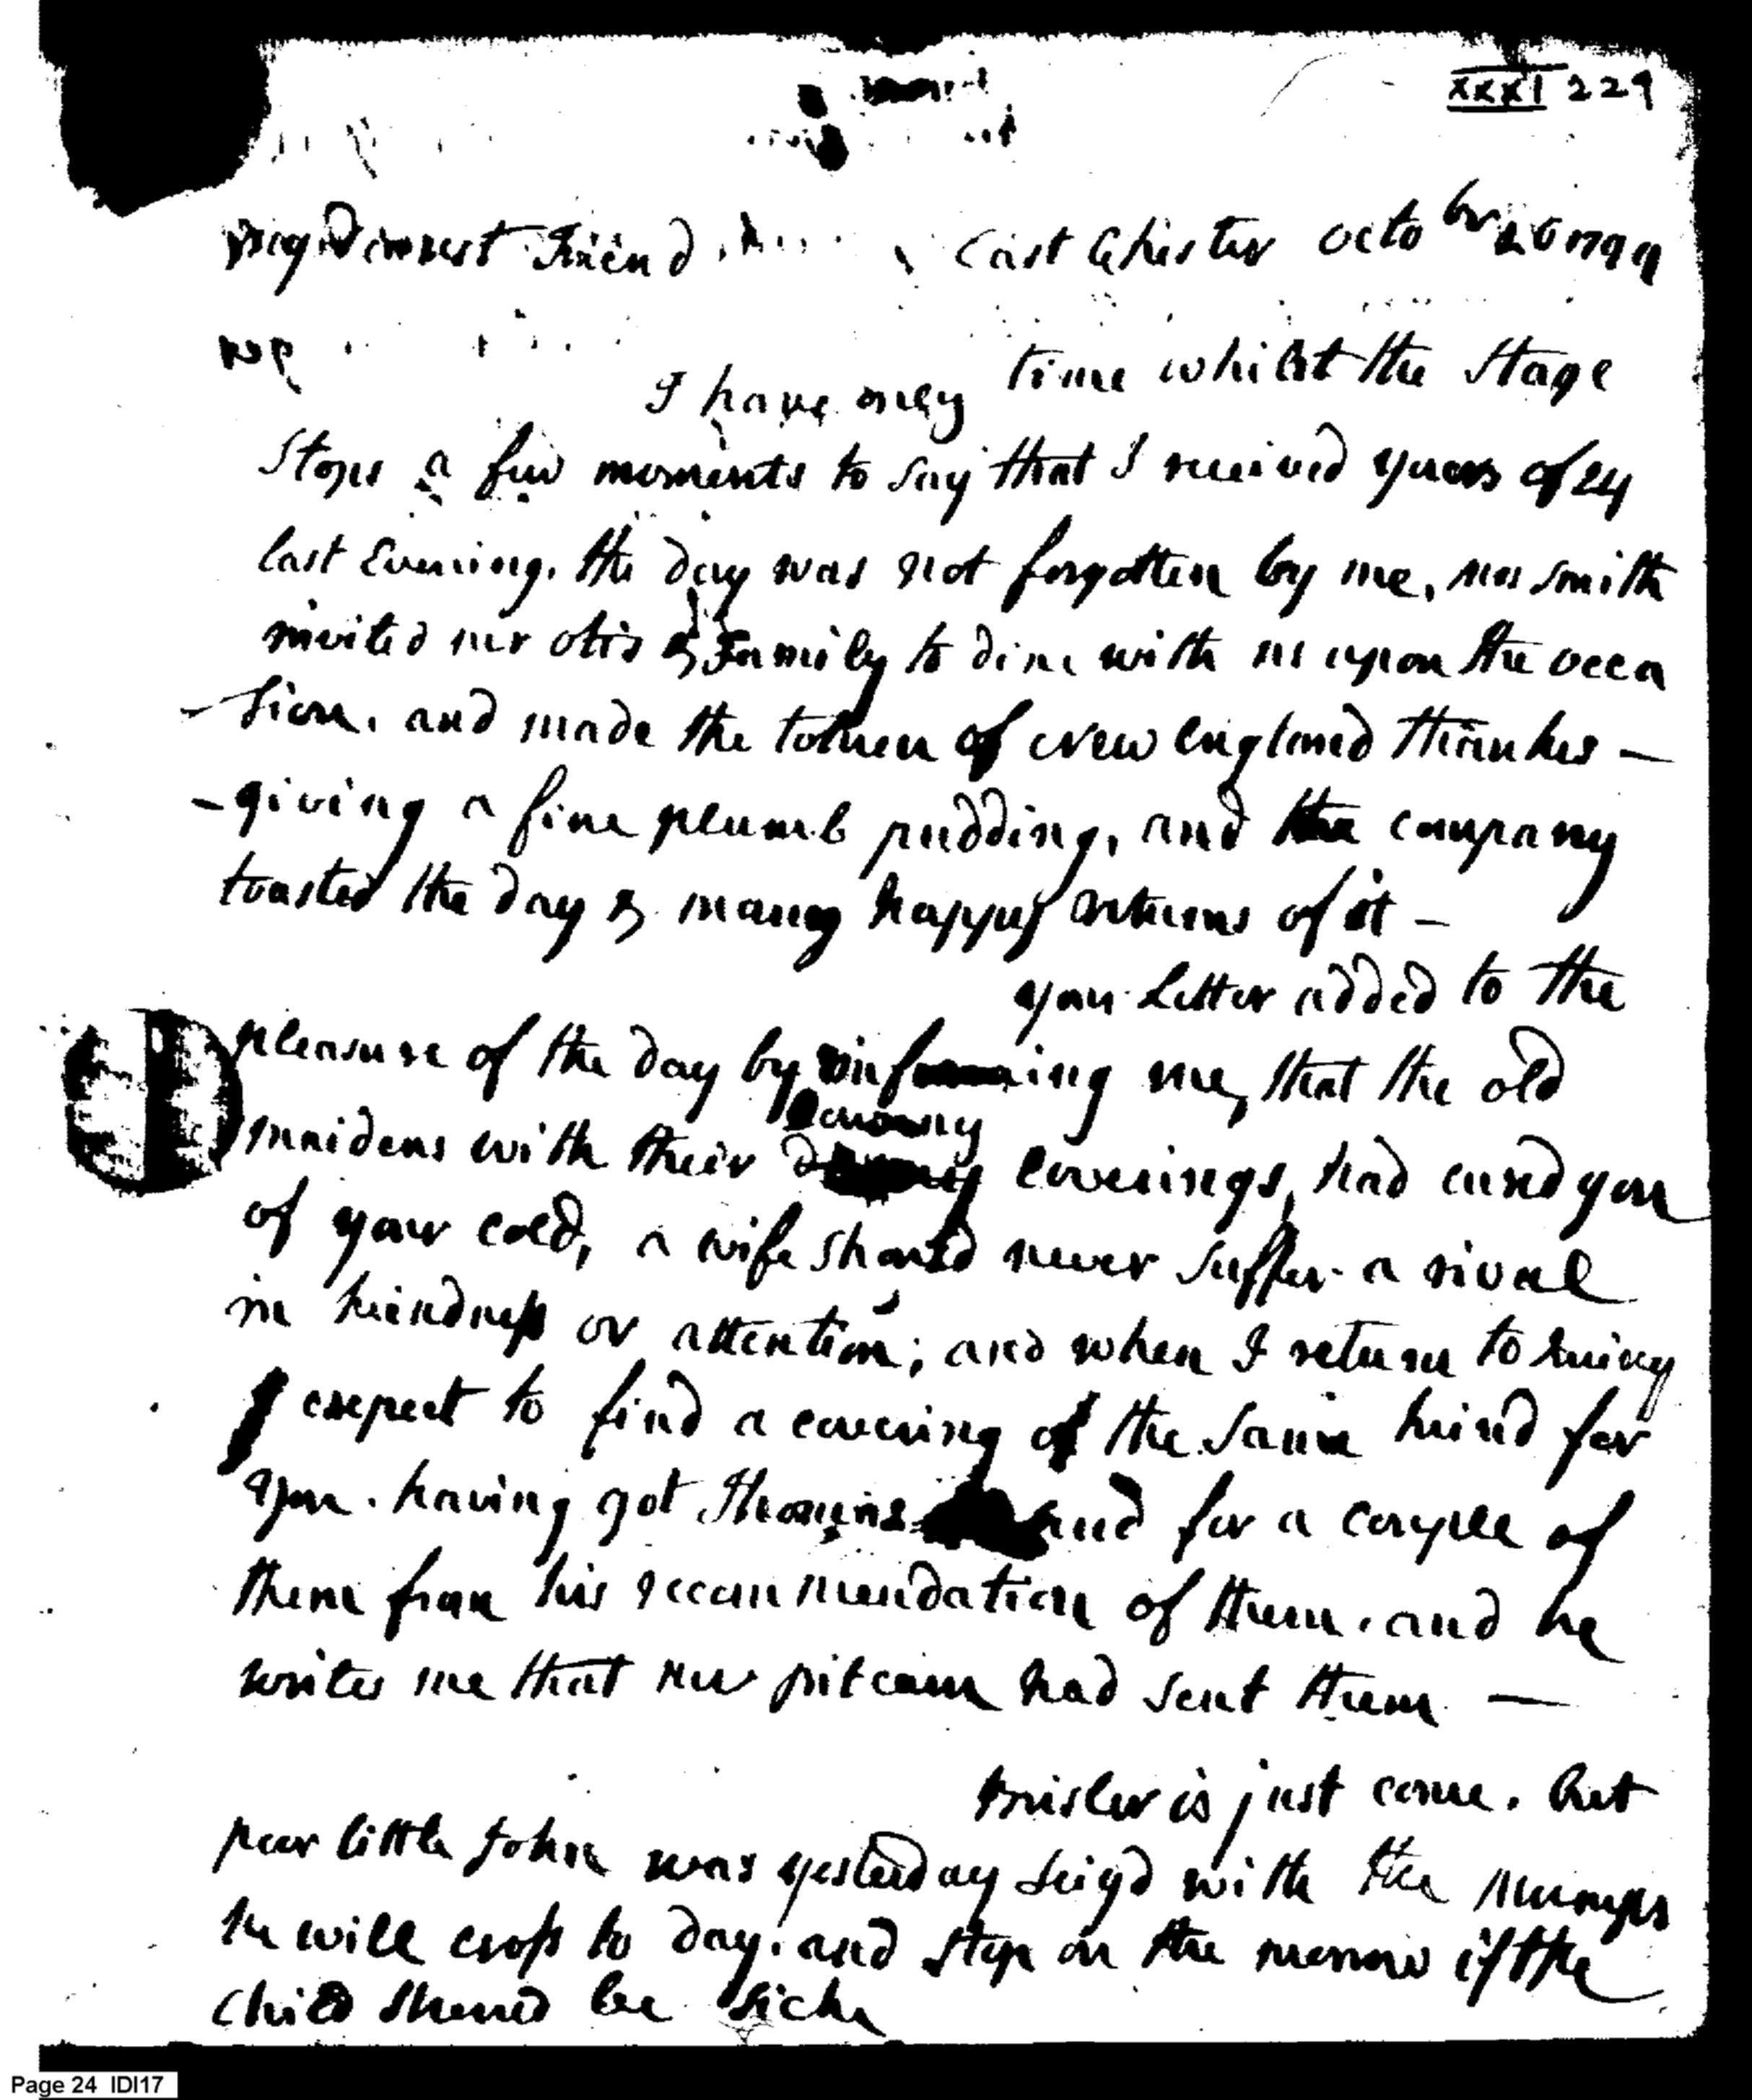 XXXI 229
my Dearest Friend East Chester octobr 26 1799
I have only time whilst the stage
stops a few moments to say that I received yours of 24
last Evening. the day was not forgotten by me, mrs smith
invited mr otis & Family to dine with us upon the occa
-sion. and made the token of New England thanks-
-giving a fine plumb pudding, and the company
toasted the day & many happy returns of it —
your Letter added to the
pleasure of the day by informing me, that the old
maidens with their downy coverings, had cured you
of your cold, a wife should never suffer a rival
in kindness or attention; and when I return to Quincy
I expect to find a covering of the same kind for
you. having got Thomas to send for a couple of
them from his recommendation of them. and he
writes me that mr pitcairn had sent them —
Brisler is just come. but
poor little John was yesterday seizd with the mumps
he will cross to day. and stop on the morrow if the
child should be sick
Page 24 IDI17